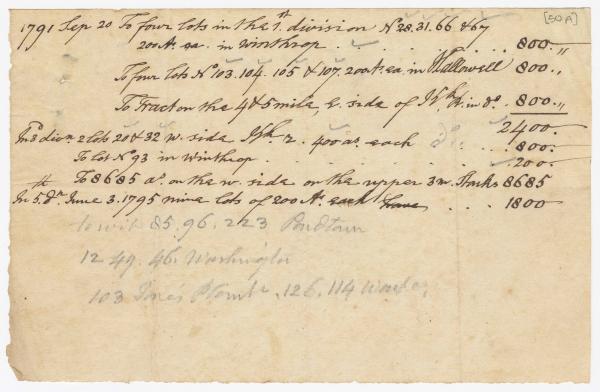 [50A]
1791 Sep 20 To four lots in the 1st division No 28. 31. 66 & 67
200 As. ea. in Winthrop . . . . . 800. "
To four lots No 103. 104. 105 & 107. 200 As. ea. in Hallowell 800. "
To Tract on the 4 & 5 mile, E. side of in Do. . 800. "
2400.
In 3d divn. 2 lots 20 & 32 w. side 400 as. each 800.
To lot No 93 in Winthrop . . . . . 200.
To 8685 as. on the w. side on the upper 3 m. Starks 8685
In 5th Dn. June 3. 1795 nine lots of 200 As. each have . . . 1800
to wit 85. 96. 223 Pondtown
12 49. 46. Washington
103 Jones 126. 114